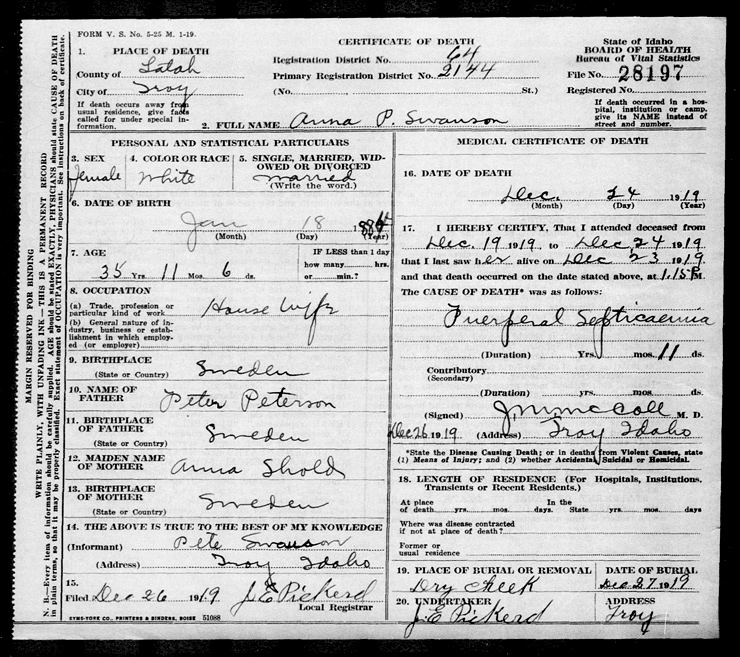 FORM V. S. No. 5-25 M. 1-19.
CERTIFICATE OF DEATH
State of Idaho
BOARD OF HEALTH
Bureau of Vital Statistics
File No. 28197
Registered No.
If death occurred in a hospital, institution or camp, give its NAME instead of street and number.
1. PLACE OF DEATH
County of Latah
City of Troy
If death occurs away from usual residence, give facts called for under special information.
Registration District No. 64
Primary Registration District No. 2144
(No. St.)
2. FULL NAME Anna P. Swanson
PERSONAL AND STATISTICAL PARTICULARS
3. SEX
Female
4. COLOR OR RACE
White
5. SINGLE, MARRIED, WIDOWED OR DIVORCED
Married
(Write the word.)
6. DATE OF BIRTH
Jan 18
(Month) (Day) (Year)
7. AGE
35 Yrs. 11 Mos. 6 ds.
IF LESS than 1 day
how many hrs.
or min.?
8. OCCUPATION
(a) Trade, profession or particular kind of work
House Wyfe
(b) General nature of industry, business or establishment in which employed (or employer)
9. BIRTHPLACE
(State or Country)
Sweden
10. NAME OF FATHER
Peter Peterson
11. BIRTHPLACE OF FATHER
(State or Country)
Sweden
12. MAIDEN NAME OF MOTHER
Anna Shold
13. BIRTHPLACE OF MOTHER
(State or Country)
Sweden
14. THE ABOVE IS TRUE TO THE BEST OF MY KNOWLEDGE
(Informant) Pete Swanson
(Address) Troy Idaho
15.
Filed Dec 26 1919 J. E. Pickerd
Local Registrar
SYMS-YORK CO., PRINTERS & BINDERS, BOISE 51088
MEDICAL CERTIFICATE OF DEATH
16. DATE OF DEATH
Dec. 24 1919
(Month) (Day) (Year)
17. I HEREBY CERTIFY, That I attended deceased from
Dec. 19 1919, to Dec 24 1919
that I last saw her alive on Dec 23 1919
and that death occurred on the date stated above, at 1.15 P M.
The CAUSE OF DEATH* was as follows:
Puerperal Septicaemia
(Duration) Yrs. mos. 11 ds.
Contributory
(Secondary)
(Duration) yrs. mos. ds.
(Signed) J M McColl M. D.
Dec 26 1919 (Address) Troy Idaho
*State the Disease Causing Death; or in deaths from Violent Causes, state (1) Means of Injury; and (2) whether Accidental, Suicidal or Homicidal.
18. LENGTH OF RESIDENCE (For Hospitals, Institutions, Transients or Recent Residents.)
At place of death yrs. mos. days. In the State yrs. mos. days
Where was disease contracted if not at place of death?
Former or usual residence
19. PLACE OF BURIAL OR REMOVAL
Dry Creek
DATE OF BURIAL
Dec 27 1919
20. UNDERTAKER
J. E. Pickerd
ADDRESS
Troy
MARGIN RESERVED FOR BINDING
WRITE PLAINLY, WITH UNFADING INK—THIS IS A PERMANENT RECORD
N. B.—Every item of information should be carefully supplied. AGE should be stated EXACTLY, PHYSICIANS should state CAUSE OF DEATH in plain terms, so that it may be properly classified. Exact statement of OCCUPATION is very important. See instructions on back of certificate.